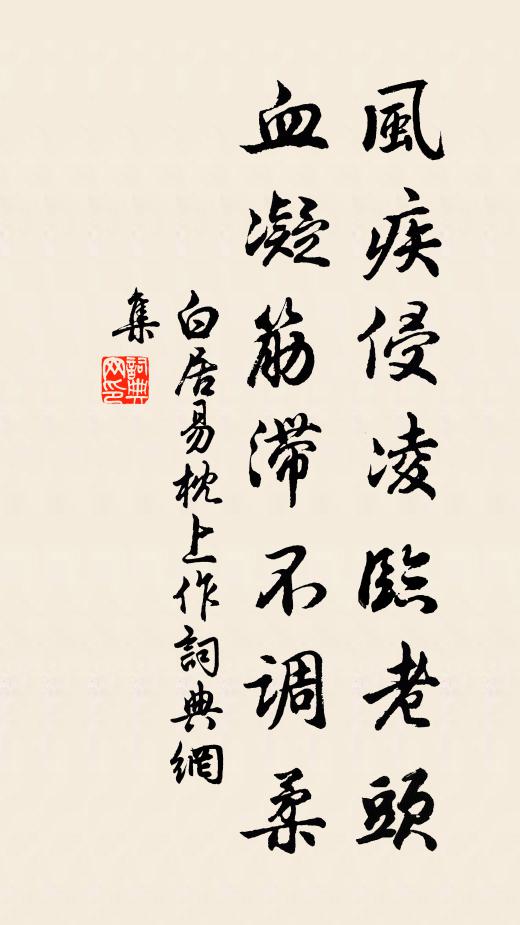 風疾侵凌臨老頭
血凝筋滯不調柔
白居易枕上作詞典網
集
詞典
网印